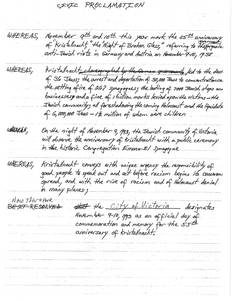 CIVIC PROCLAMATION
WHEREAS, November 9th and 10th this year mark the 55th anniversary
of Kristallnacht, "the Night of Broken Glass", referring to the
anti-Jewish riots in Germany and Austria on November 9-10, 1938
WHEREAS, Kristallnacht led to the death
of 36 Jews, the arrest and deportation of 30,000 Jews to concentration
the setting fire of 267 synagogues, the looting of 7000 Jewish shops and
businesses and a fine of 1 billion marks levied upon the victims - the
Jewish community, as foreshadowing the coming Holocaust and the
of 6,000,000 Jews - 1.5 million of whom were children
WHEREAS, On the night of November 9, 1993, the Jewish community of Victoria
will observe the anniversary of Kristallnacht with a public ceremony
in the historic Congregation Emanu-El Synagogue
WHEREAS, Kristallnacht conveys with unique urgency the responsibility of
good people to speak out and act before racism begins to
spread, and with the rise of racism and of Holocaust denial
in many places,
Now Therefore
BE IT RESOLVED that the City of Victoria designates
November 9-10, 1993 as an official day of
commemoration and memory for the 55th
anniversary of Kristallnacht.